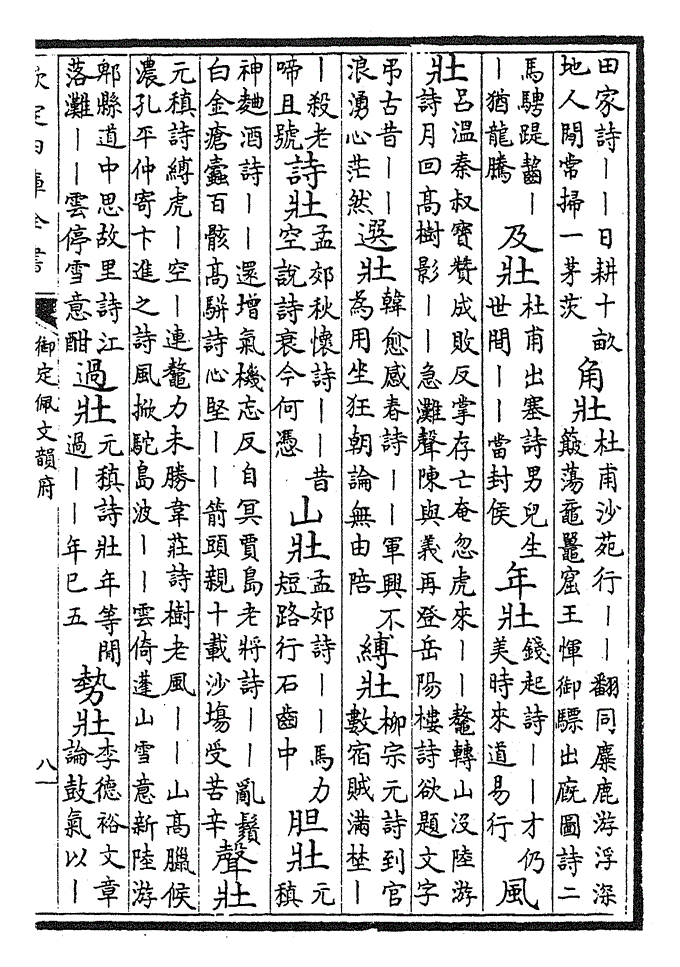 田家詩｜｜日耕十畝
地人閒常掃一茅茨
角壯
杜甫沙苑行｜｜翻同麋鹿游浮深
簸蕩黿鼉窟王惲御驃出廐圖詩二
馬騁踶齧｜
｜猶龍騰
及壯
杜甫出塞詩男兒生
世間｜｜當封侯
年壯
錢起詩｜｜才仍
美時來道易行
風
壯
呂溫秦叔寶贊成敗反掌存亡奄忽虎來｜｜鼇轉山沒陸游
詩月回高樹影｜｜急灘聲陳與義再登岳陽樓詩欲題文字
弔古昔｜｜
浪湧心茫然
選壯
韓愈感春詩｜｜軍興不
為用坐狂朝論無由陪
縛壯
柳宗元詩到官
數宿賊滿埜｜
｜殺老
啼且號
詩壯
孟郊秋懷詩｜｜昔
空說詩衰今何憑
山壯
孟郊詩｜｜馬力
短路行石齒中
胆壯
元
稹
神麯酒詩｜｜還增氣機忘反自冥賈島老將詩｜｜亂鬚
白金瘡蠹百骸高駢詩心堅｜｜箭頭親十載沙塲受苦辛
聲壯
元稹詩縛虎｜空｜連鼇力未勝韋莊詩樹老風｜｜山高臘候
濃孔平仲寄卞進之詩風掀駝島波｜｜雲倚蓬山雪意新陸游
郫縣道中思故里詩江
落灘｜｜雲停雪意酣
過壯
元稹詩壯年等閒
過｜｜年已五
勢壯
李德裕文章
論鼓氣以｜
欽定四庫全書
御定佩文韻府
八一